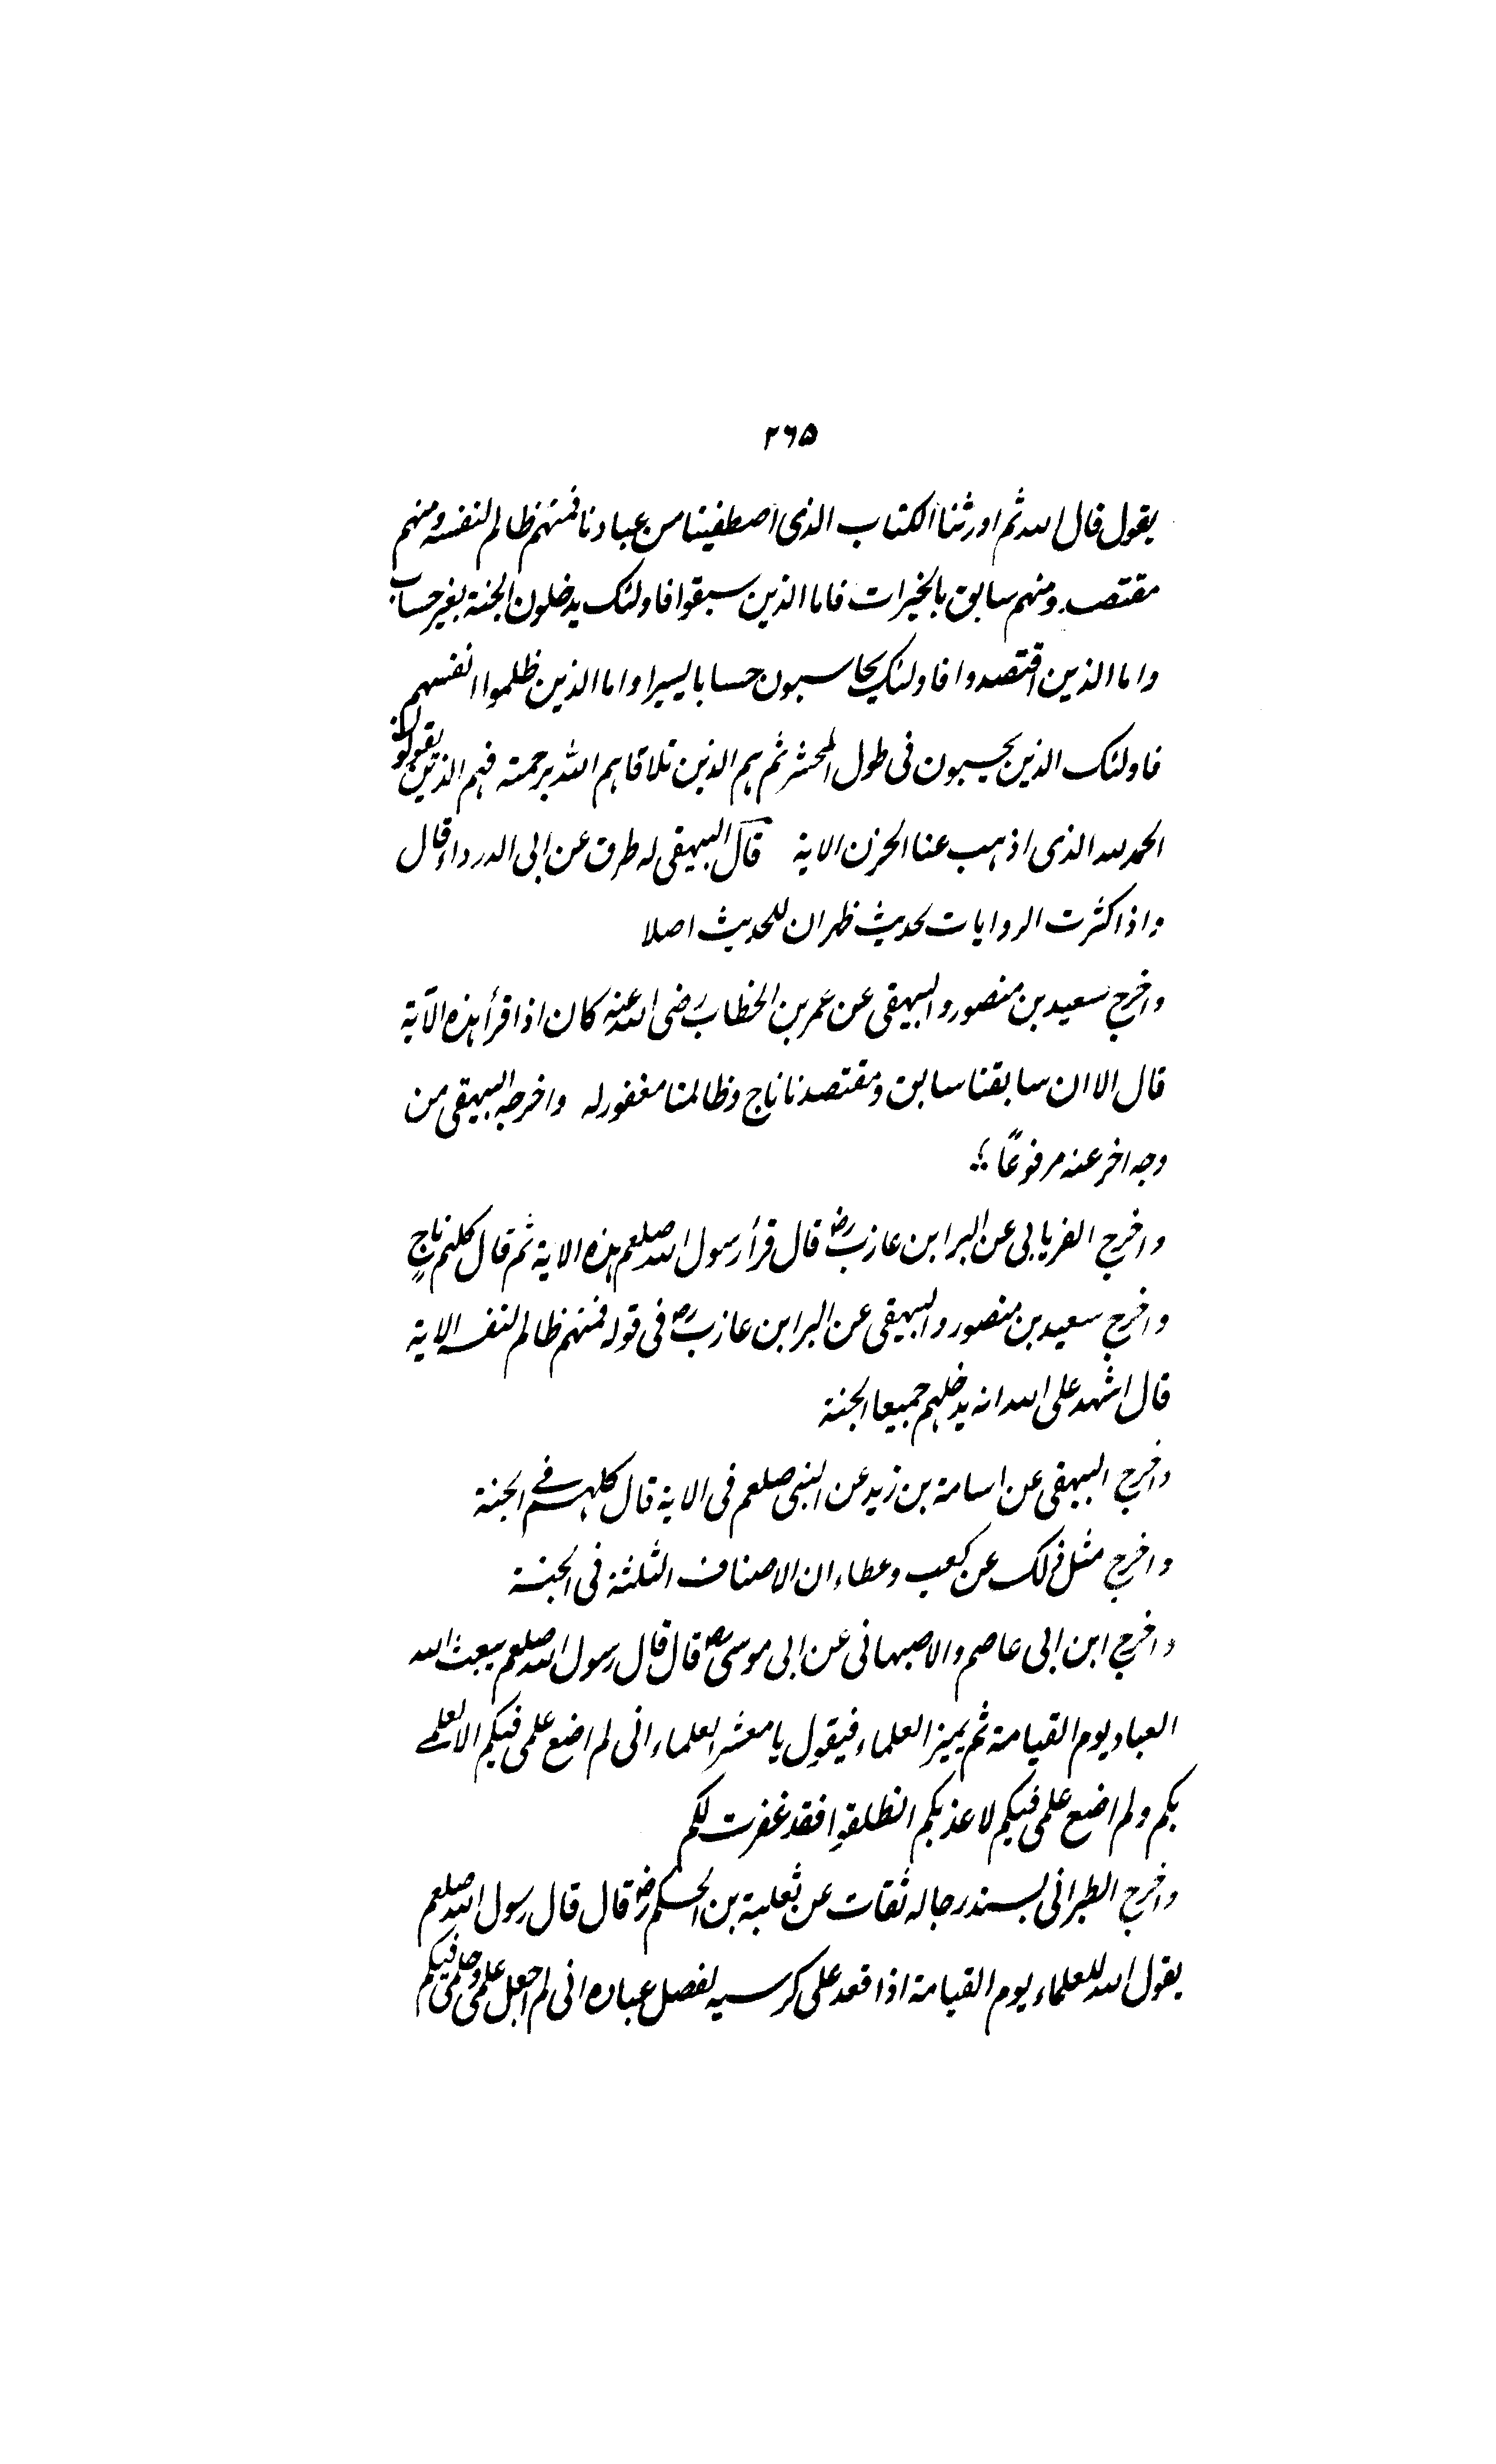 ۲۶۵
يقول قال الله ثم اورثنا الكتاب الذى اصطفينا من عبادنا فمنهم ظالم لنفسه ومنهم
مقتصد ومنهم سابق بالخيرات فاما الذين سبقوا فاولئك يدخلون الجنة بغير حساب
واما الذين اقتصدوا فاولئك يحاسبون حسابا يسيرا واما الذين ظلموا انفسهم
فاولئك الذين يحبسون فى طول المحشر ثم هم الذين تلاقاهم الله برحمته فهم الذين يقولون
الحمد لله الذى اذهب عنا الحزن الاية قال البيهقى له طرق عن ابى الدرداء قال
واذا كثرت الروايات لحديث ظهر ان للحديث اصلا
واخرج سعيد بن منصور والبيهقى عن عمر بن الخطاب رضى الله عنه كان اذا قرأ هذه الآية
قال الا ان سابقنا سابق ومقتصدنا ناج وظالمنا مغفور له واخرجه البيهقى من
وجه اخر عنه مرفوعًا ؛
واخرج الفريابى عن البرا ابن عازب رض قال قرأ رسول الله صلعم هذه الاية ثم قال كلهم ناجٍ
واخرج سعيد بن منصور والبيهقى عن البرا ابن عازب رض فى قوله فمنهم ظالم لنفسه الاية
قال اشهد على الله انه يدخلهم جميعا الجنة
واخرج البيهقى عن اسامة بن زيد عن النبى صلعم فى الاية قال كلهم فے الجنة
واخرج مثل ذلك عن كعب وعطاء ان الاصناف الثلثة فى الجنة
واخرج ابن ابى عاصم والاصبهانى عن ابى موسى رض قال قال رسول الله صلعم يبعث الله
العباد يوم القيامة ثم يميز العلماء فيقول يا معشر العلماء انى لم اضع علمى فيكم الا لعلمے
بكم ولم اضع علمى فيكم لاعذبكم انطلقوا فقد غفرت لكم
واخرج الطبرانى بسند رجاله ثقات عن ثعلبة بن الحكم رض قال قال رسول الله صلعم
يقول الله للعلماء يوم القيامة اذا قعد على كرسيه لفصل عباده انى لم اجعل علمى وحلمى فيكم